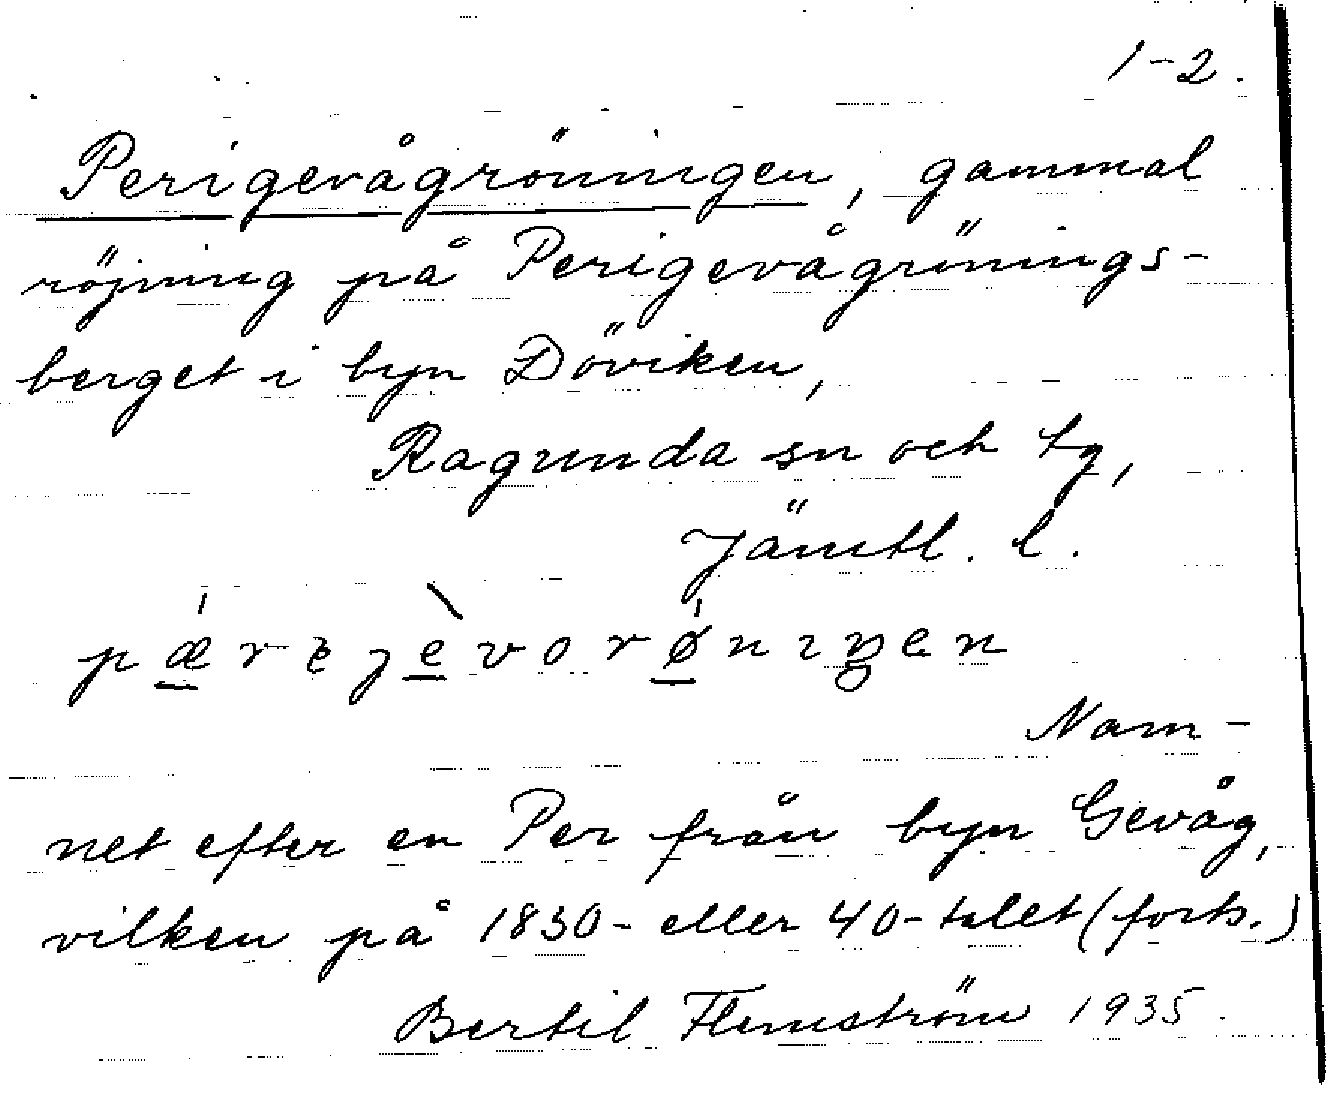 1-2.
Perigevågröningen, gammal
röjning på Perigevågrönings-
berget i byn Döviken,
Ragunda sn och tg,
Jämtl. l.
Nam-
net efter en Per från byn Gevåg,
vilken på 1830- eller 40-talet (forts.)
Bertil Flemström 1935